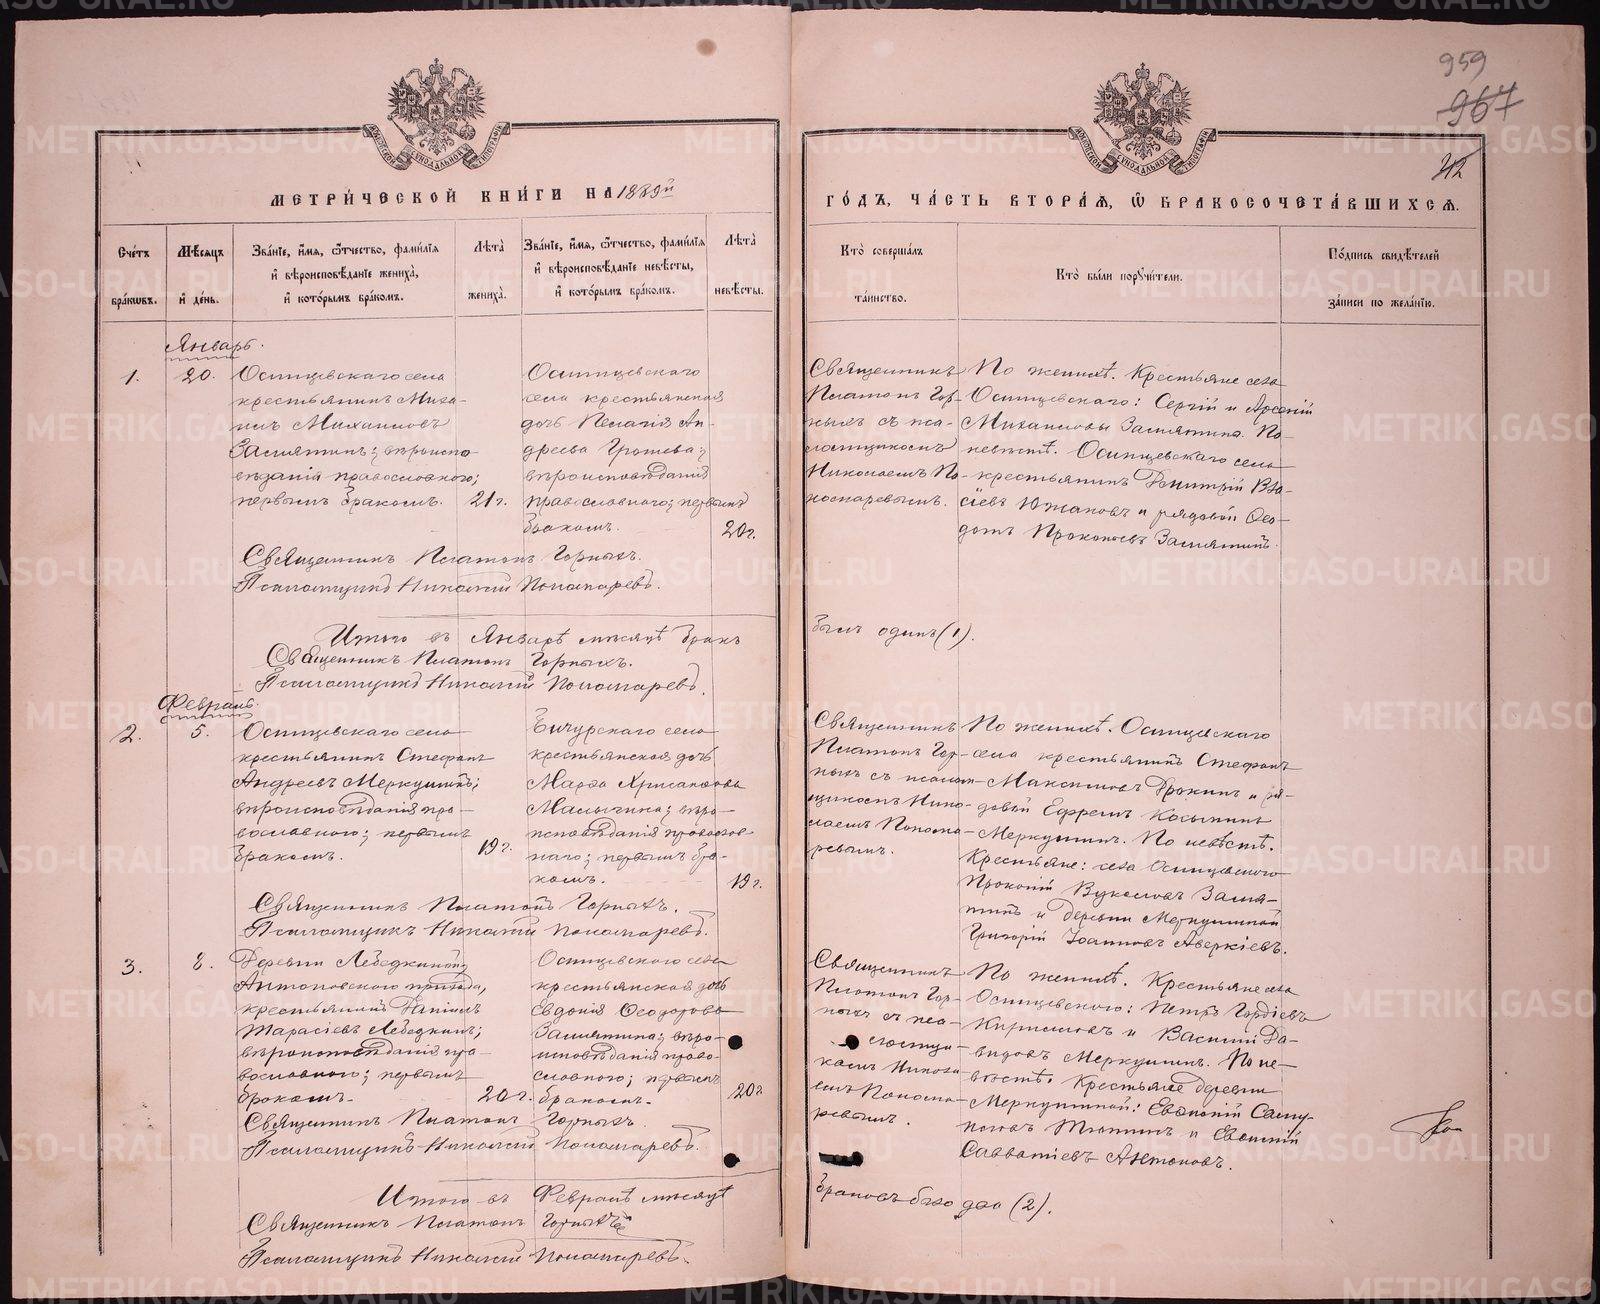 959
967
212
МЕТРИ́ЧЕСКОЙ КНИ́ГИ НА 1889й
ГО́ДЪ, ЧА́СТЬ ВТОРА́Я, Ѿ БРАКОСОЧЕТА́ВШИХСЯ.
Сче́тъ бра́кѡвъ.
Мѣ́сяцъ и҆ де́нь.
Зва́нїе, и҆́мѧ, ѻ҆́тчество, фами́лїѧ
и҆ вѣроисповѣ́данїе жениха̀,
и҆ кото́рымъ бра́комъ.
Лѣ́та жениха̀.
Зва́нїе, и҆́мѧ, ѻ҆́тчество, фами́лїѧ
и҆ вѣроисповѣ́данїе невѣ́сты,
и҆ кото́рымъ бра́комъ.
Лѣ́та невѣ́сты.
Кто̀ соверша́лъ та́инство.
Кто̀ бы́ли порꙋчи́тели.
По́дпись свидѣ́телей
за́писи по жела́нїю.
Январь.
1.
20.
Осинцевскаго села
крестьянинъ Миха-
илъ Михаиловъ
Замятинъ; вѣроиспо-
вѣданія православного;
первымъ бракомъ.
21 г.
Осинцевскаго
села крестьянская
дочь Пелагія Ан-
дреева Грошева;
вѣроисповѣданія
православного; первымъ
бракомъ.
20 г.
Священникъ
Платонъ Гор-
ныхъ съ пса-
ломщикомъ
Николаемъ По-
номаревымъ.
По женихѣ. Крестьяне села
Осинцевскаго: Сергій и Арсеній
Михаиловы Замятины. По
невѣстѣ. Осинцевскаго села
крестьянинъ Димитрій Вла-
сіевъ Южаковъ и рядовой Ѳео-
дотъ Прокопьевъ Замятинъ.
Священникъ Платонъ Горныхъ.
Псаломщикъ Николай Пономаревъ.
Итого въ Январѣ мѣсяцѣ бракъ
былъ одинъ (1).
Священникъ Платонъ Горныхъ.
Псаломщикъ Николай Пономаревъ.
Февраль.
2.
5.
Осинцевскаго села
крестьянинъ Стефанъ
Андреевъ Меркушинъ;
вѣроисповѣданія пра-
вославного; первымъ
бракомъ.
19 г.
Бичурскаго села
крестьянская дочь
Марѳа Хрисанфова
Малыгина; вѣро-
исповѣданія православ-
наго; первымъ бра-
комъ.
19 г.
Священникъ
Платонъ Гор-
ныхъ съ псалом-
щикомъ Нико-
лаемъ Понома-
ревымъ.
По женихѣ. Осинцевскаго
села крестьянинъ Стефанъ
Максимовъ Ерокинъ и ря-
довый Ефремъ Косьминъ
Меркушинъ. По невѣстѣ.
Крестьяне: села Осинцевскаго
Прокопій Вуколовъ Замя-
тинъ и деревни Меркушиной
Григорій Іоанновъ Аверкіевъ.
Священникъ Платонъ Горныхъ.
Псаломщикъ Николай Пономаревъ.
3.
8.
Деревни Лебедкиной,
Антоновского прихода,
крестьянинъ Даніилъ
Тарасіевъ Лебедкинъ;
вѣроисповѣданія пра-
вославного; первымъ
бракомъ.
20 г.
Осинцевскаго села
крестьянская дочь
Евдокія Ѳеодорова
Замятина; вѣро-
исповѣданія право-
славного; первымъ
бракомъ.
20 г
Священникъ
Платонъ Гор-
ныхъ съ пса-
ломщи-
комъ Никола-
емъ Понома-
ревымъ.
По женихѣ. Крестьяне села
Осинцевскаго: Петръ Гордіевъ
Кирилловъ и Василій Да-
видовъ Меркушинъ. По не-
вѣстѣ. Крестьяне деревни
Меркушиной: Евѳимій Саму-
иловъ Тютинъ и Евѳимій
Савватіевъ Антоновъ.
Священникъ Платонъ Горныхъ.
Псаломщикъ Николай Пономаревъ.
Итого въ Февралѣ мѣсяцѣ
браковъ было два (2).
Священникъ Платонъ Горныхъ
Псаломщикъ Николай Пономаревъ.
METRIKI.GASO-URAL.RU